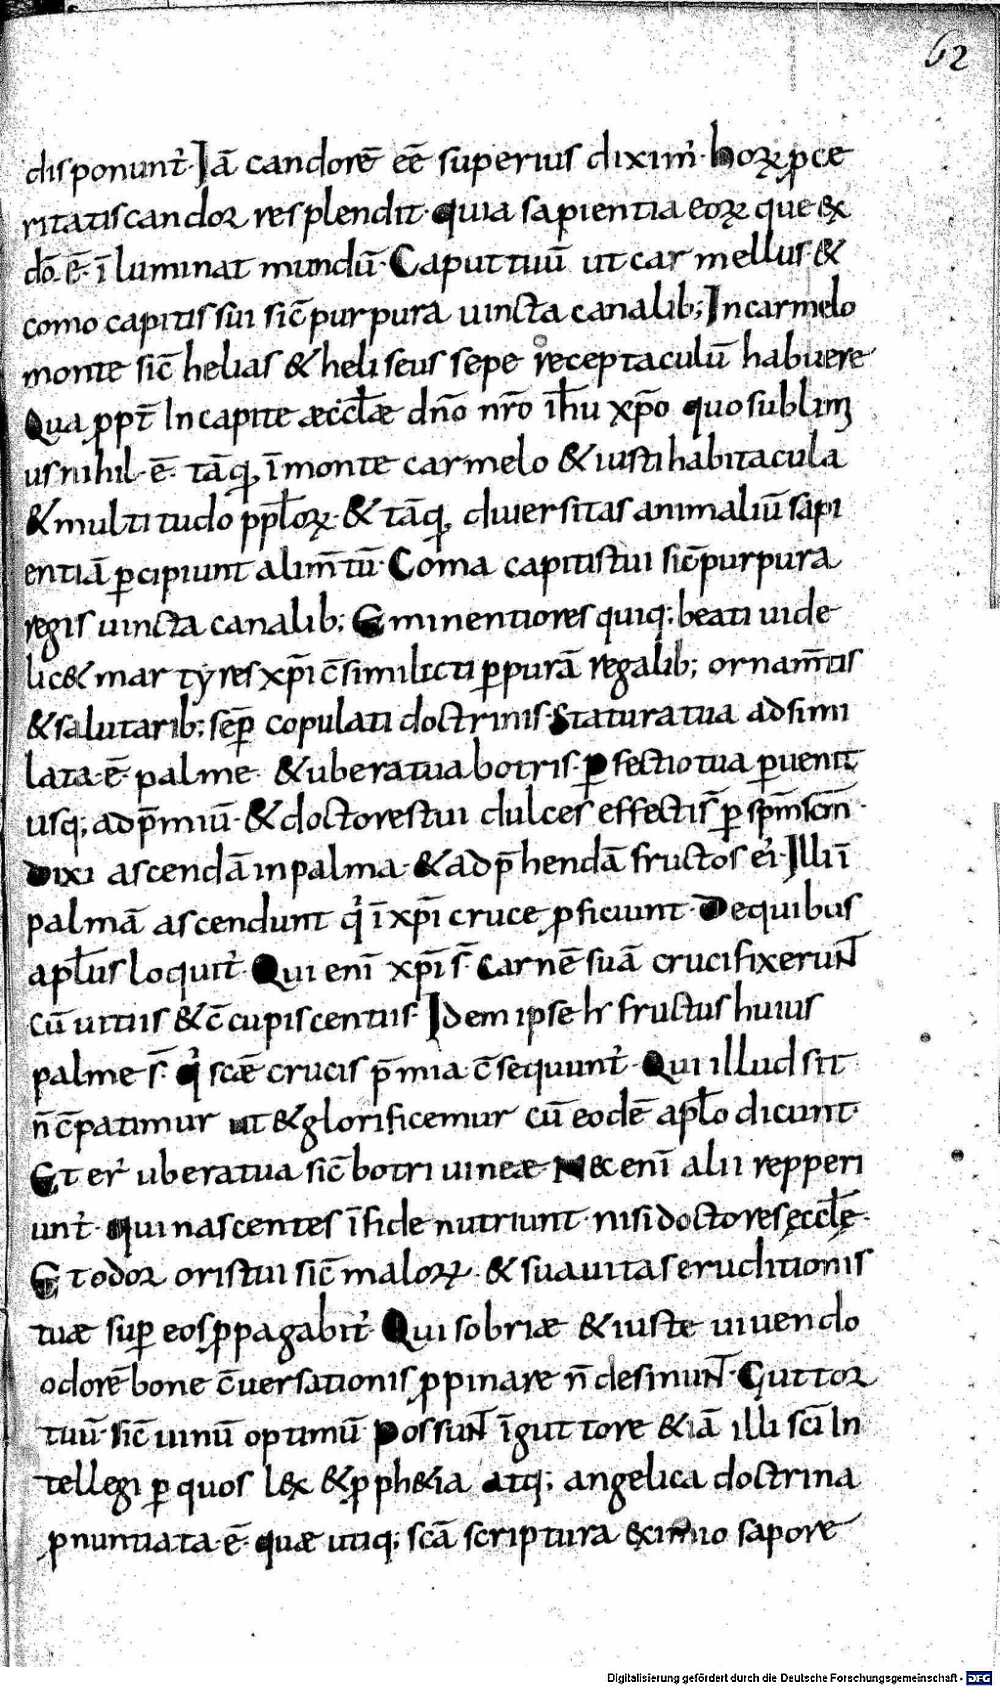 62
disponunt᷑· Iā candorē eē superius dixim᷒· horꝝ ꝓce
ritatis candor resplendit· quia sapientia eorꝝ que ex
dō· ē· īluminat mundū· Caput tuū ut car mellus· &
como capitis sui sic̄ purpura uincta canalib; In carmelo
monte sic̄ helias & heliseus sepe receptaculū habuere
Qua ꝓpt̄ In capite æccl̄æ dn̄o nr̄o ih̄u xp̄o quo sublimi
us nihil· ē· tāq̄, ī monte carmelo & iusti habitacula
& multitudo pp̄lorꝝ· & tāq̄, diuersitas animaliū sapi
entiā ꝑcipiunt alim̄tū· Coma capitis tui sic̄ purpura
regis uincta canalib; Eminentiores quiq; beati uide
lic& martyres xp̄i c̄similicti ꝑpurā regalib; ornam̄tis
& salutarib; sep̄ copulati doctrinis· Statura tua adsimi
lata· ē· palme· & ubera tua botris· ꝑfectio tua ꝑuenit
usq; ad p̄miū· & doctores tui dulces effecti s̄ ꝑ sp̄m sc̄m·
Dixi ascendā in palma· & adp̄hendā fructos ei᷒· Illi ī
palmā ascendunt qͥ ī xp̄i cruce ꝓficiunt· De quibus
apl̄us loquit᷑· Qui enī xp̄i s̄· Carnē suā crucifixerunt
cū uitiis & c̄cupiscentiis· Idem ipse hr fructus huius
palme s̄· qͥ scæ crucis p̄mia c̄sequunt᷑· Qui illud sit
n̄ c̄patimur ut & glorificemur cū eodē apl̄o dicunt·
Et er᷑ ubera tua sic̄ botri uineæ· Nec enī alii repperi
unt᷑· qui nascentes ī fide nutriunt· nisi doctores ęccl̄ę·
Et odor oris tui sic̄ malorꝝ· & suauitas eruditionis
tuæ suꝑ eos ꝓpagabit᷑· Qui sobriæ & iuste uiuendo
odorē bone c̄uersationis ꝓpinare n̄ desinunt· Guttor
tuū· sic̄ uinū optimū· Possunt ī guttore & iā illi sc̄i In
tellegi ꝑ quos lex & ꝓph&ia atq; angelica doctrina
ꝓnuntiata· ē· quæ utiq; scā scriptura eximio sapore
Digitalisierung gefördert durch die Deutsche Forschungsgemeinschaft - DFG